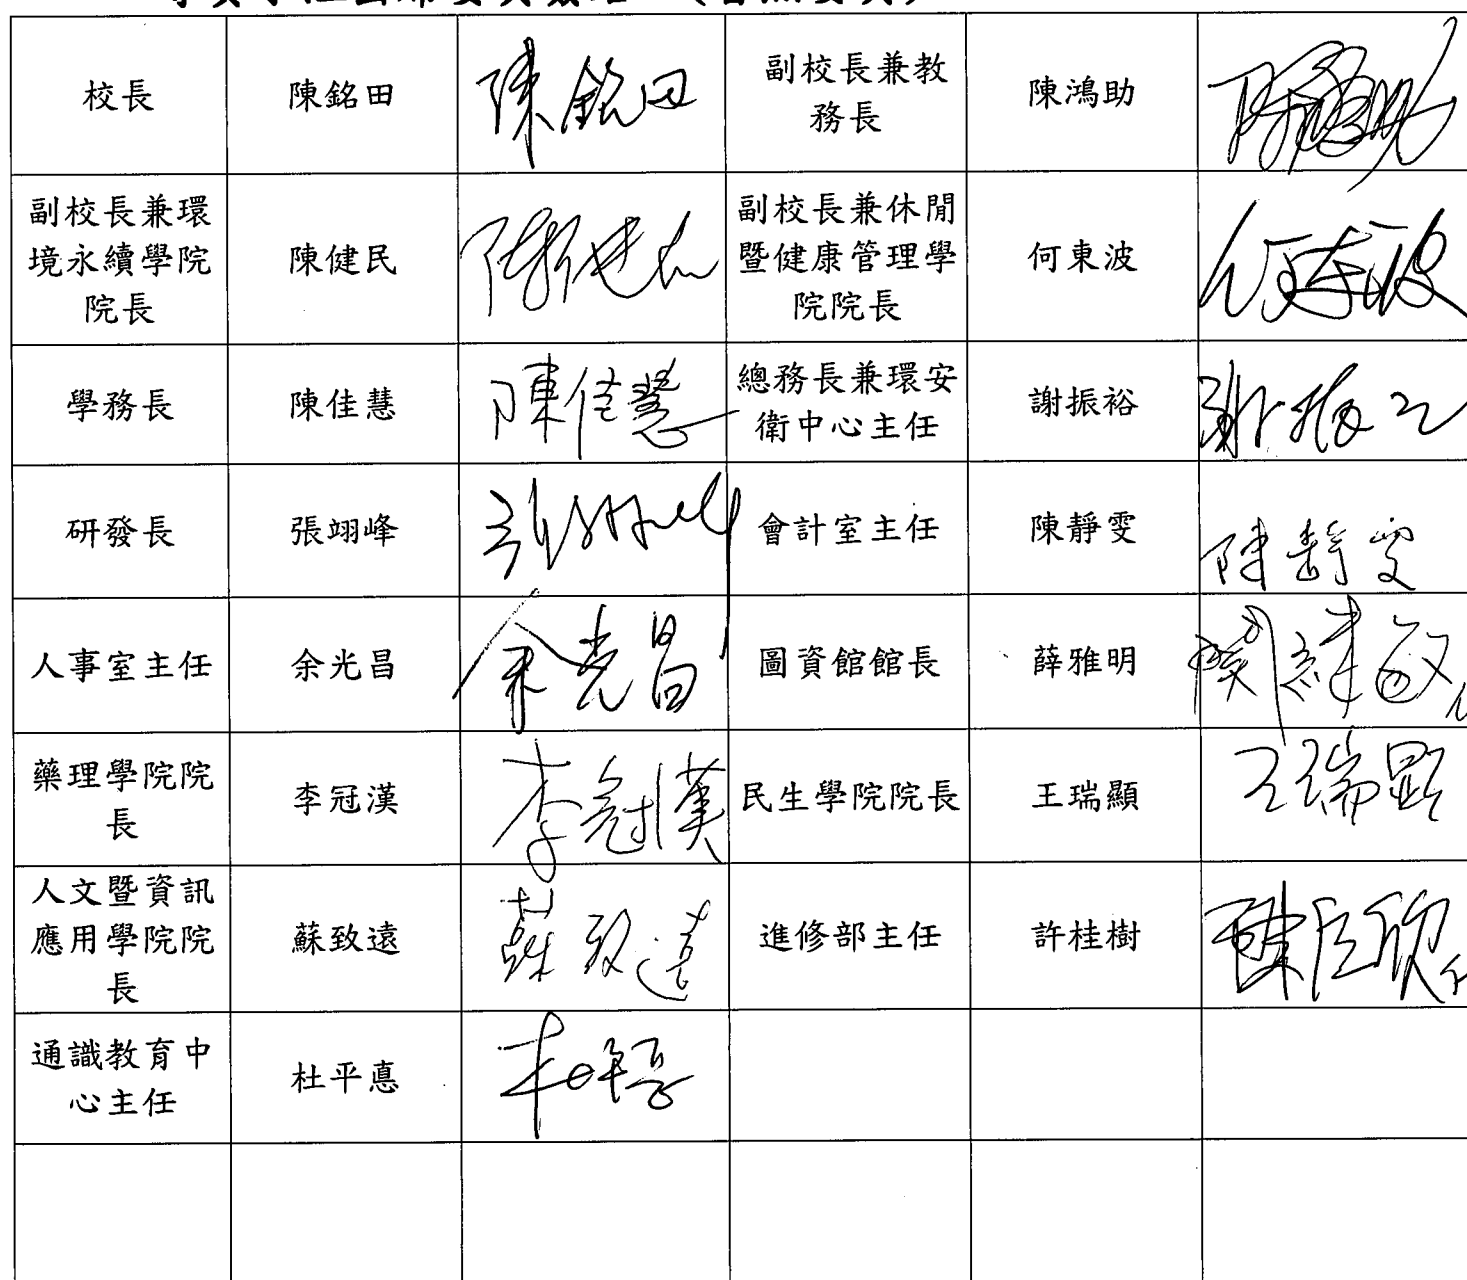 校長 陳銘田 陳銘田 副校長兼教務長 陳鴻助
副校長兼環境永續學院院長 陳健民 副校長兼休閒暨健康管理學院院長 何東波
學務長 陳佳慧 陳佳慧 總務長兼環安衛中心主任 謝振裕
研發長 張翊峰 會計室主任 陳靜雯 陳靜雯
人事室主任 余光昌 余光昌 圖資館館長 薛雅明
藥理學院院長 李冠漢 李冠漢 民生學院院長 王瑞顯 王瑞顯
人文暨資訊應用學院院長 蘇致遠 蘇致遠 進修部主任 許桂樹
通識教育中心主任 杜平悳